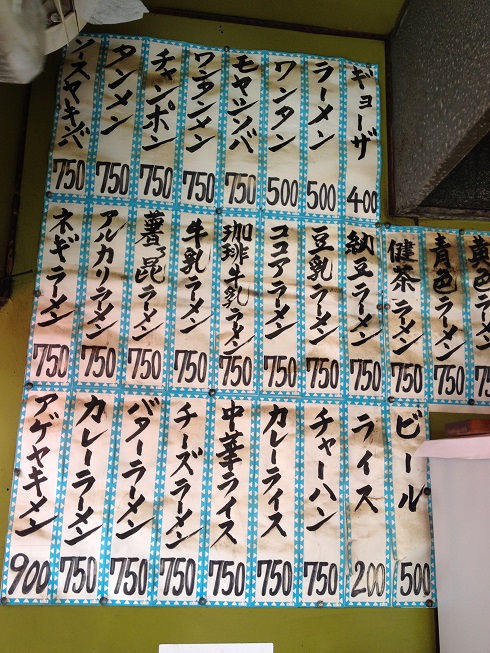 ギョーザ 400
ラーメン 500
ワンタン 500
モヤシソバ 750
ワンタンメン 750
チャンポン 750
タンメン 750
ソースヤキソバ 750
黄色ラーメン 75
青色ラーメン 750
健茶ラーメン 750
納豆ラーメン 750
豆乳ラーメン 750
ココアラーメン 750
珈琲牛乳ラーメン 750
牛乳ラーメン 750
ラーメン 750
アルカリラーメン 750
ネギラーメン 750
ビール 500
ライス 200
チャーハン 750
カレーライス 750
中華ライス 750
チーズラーメン 750
バターラーメン 750
カレーラーメン 750
アゲヤキメン 900